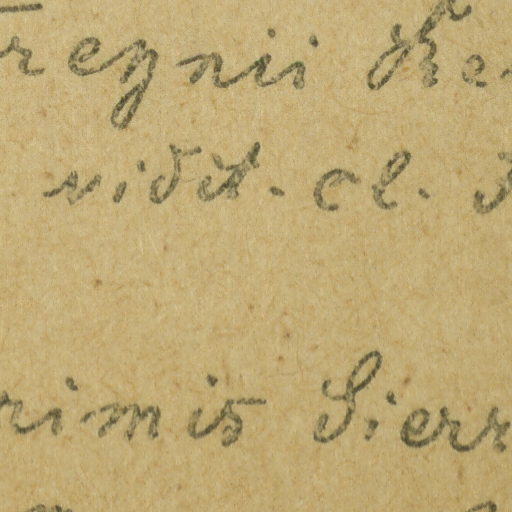 regnii Re
vidit. cl.
rimis Sierr